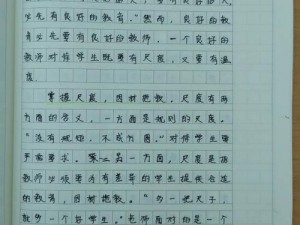 必先有良好的教育。"然而，良好的教
育必先要有良好的教师，一个良好的
教师对待学生既要有尺度，又要有温
度
掌握尺度，因材施教。尺度有两
方面的含义，一方面是规则的尺度。
"没有规矩，不成方圆。"对待学生要
严要求。另一方面，尺度是指
教师必须要为有差异的学生提供合适
的教育，因材施教。"多一把尺子，
就多一个好学生。"老师面对的是一个